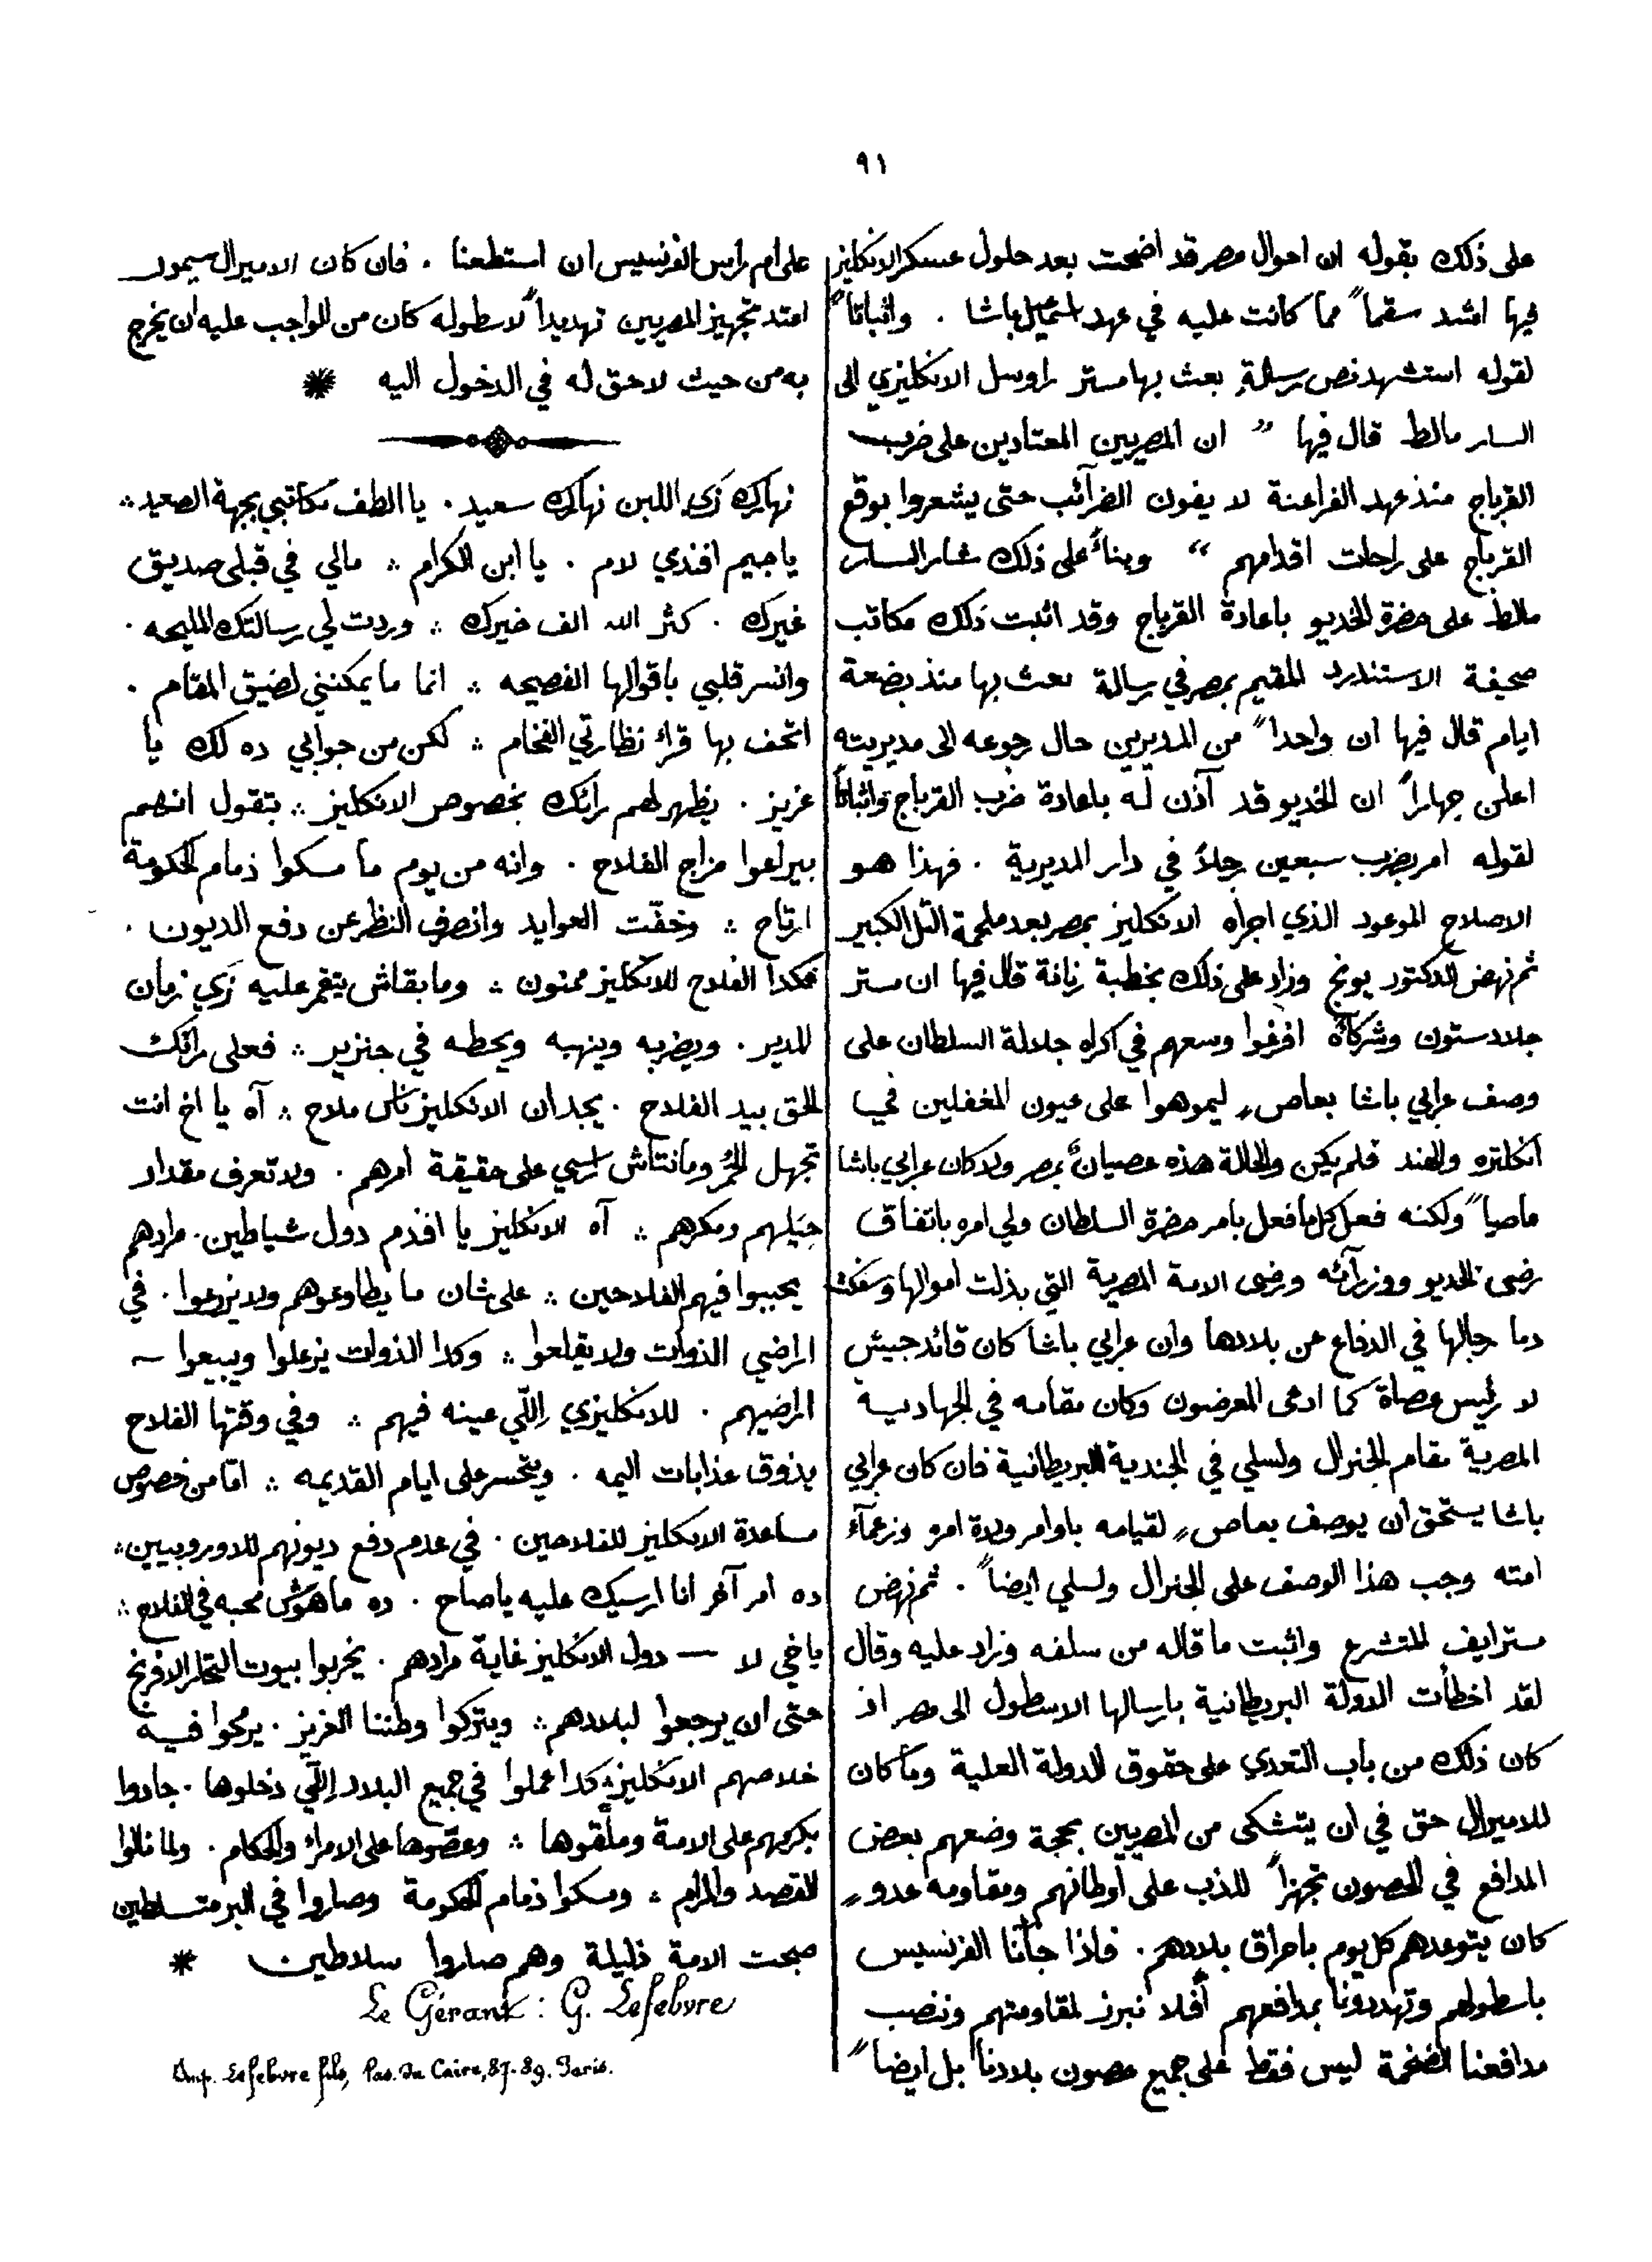 ٩١
على ذلك بقوله ان احوال مصر قد اضحت بعد حلول عسكر الانكليز
فيها اشد سقماً مما كانت عليه في عهد اسمعيل باشا . واثباتاً
لقوله استشهد نص رسالةٍ بعث بها مستر راوسل الانكليزي الى
السار مالط قال فيها " ان المصريين المعتادين على ضرب
القرباج منذ عهد الفراعنة لا يفون الضرآئب حتى يشعروا بوقع
القرباج على راحات اقدامهم " وبناءً على ذلك شار السار
مالط على حضرة الخديو باعادة القرباج وقد اثبت ذلك مكاتب
صحيفة الاستندرد المقيم بمصر في رسالة بعث بها منذ بضعة
ايام قال فيها ان واحداً من المديرين حال رجوعه الى مديريته
اعلن جهاراً ان الخديو قد آذن له باعادة ضرب القرباج واثباتاً
لقوله امر بضرب سبعين رجلاً في دار المديرية . فهذا هو
الاصلاح الموعود الذي اجراه الانكليز بمصر بعد ملحمة التل الكبير
ثم نهض الدكتور يونج وزاد على ذلك بخطبة رنانة قال فيها ان مستر
جلادستون وشركاه افرغوا وسعهم في اكراه جلالة السلطان على
وصف عرابي باشا بعاصٍ ليموهوا على عيون المغفلين في
انكلتره والهند فلم يكن والحالة هذه عصيانٌ بمصر ولا كان عرابي باشا
عاصياً ولكنه فعل كل ما فعل بامر حضرة السلطان ولي امره باتفاق
رضى الخديو ووزرآئه ورضى الامة المصرية التي بذلت اموالها وسفكت
دما رجالها في الدفاع عن بلادها وان عرابي باشا كان قائد جيش
لا رئيس عصاة كما ادعى المعرضون وكان مقامه في الجهادية
المصرية مقام الجنرال ولسلي في الجندية البريطانية فان كان عرابي
باشا يستحق ان يوصف بعاصٍ لقيامه باوامر ولاة امرو وزعمآء
امته وجب هذا الوصف على الجنرال ولسلي ايضاً . ثم نهض
مستر ايف المتشرع واثبت ما قاله من سلفه وزاد عليه وقال
لقد اخطأت الدولة البريطانية بارسالها الاسطول الى مصر اذ
كان ذلك من باب التعدي على حقوق الدولة العلية وما كان
للاميرال حق في ان يتشكى من المصريين بحجة وضعهم بعض
المدافع في الحصون تجهزاً للذب على اوطانهم ومقاومة عدوٍ
كان يتوعدهم كل يوم باحراق بلادهم . فاذا جآنا الفرنسيس
باسطولهم وتهددونا بمدافعهم أفلا نبرز لمقاومتهم وننصب
مدافعنا الضخمة ليس فقط على جميع حصون بلادنا بل ايضاً
على ام رأس الفرنسيس ان استطعنا . فان كان الاميرال سيمور
اعتد تجهيز المصريين تهديداً لاسطوله كان من الواجب عليه ان يخرج
به من حيث لا حق له في الدخول اليه *
نهارك زي اللبن نهارك سعيد . يا الطف مكاتبي بجهة الصعيد ∴
يا جيم افندي لام . يا ابن الكرام ∴ مالي في قبلي صديق
غيرك . كثر الله الف خيرك ∴ وردت لي رسالتك المليحه .
وانسر قلبي باقوالها الفصيحه ∴ انما ما يمكنني لضيق المقام .
اتحف بها قراء نظارتي الفخام ∴ لكن من جوابي ده لك يا
عزيز . يظهر لهم رائك بخصوص الانكليز ∴ بتقول انهم
بيراعوا مزاج الفلاح . وانه من يوم ما مسكوا ذمام الحكومة
ارتاح ∴ وخفّت العوايد وانصرف النظر عن دفع الديون .
فكدا الفلاح للانكليز ممنون ∴ وما بقاش يتغمر عليه زي زمان
المدير . ويضربه وينهبه ويحطه في جنزير ∴ فعلى رائك
الحق بيد الفلاح . يجد ان الانكليز ناس ملاح ∴ آه يا اخ انت
تجهل المر وما نتاش راسي على حقيقة امرهم . ولا تعرف مقدار
حيلهم ومكرهم ∴ آه الانكليز يا افندم دول شياطين . مرادهم
يحببوا فيهم الفلاحين ∴ على شان ما يطاوعوهم ولا يزرعوا . في
اراضي الذوات ولا يقلعوا ∴ وكدا الذوات يزعلوا ويبيعوا ~
اراضيهم . للانكليزي اللّي عينه فيهم ∴ وفي وقتها الفلاح
يذوق عذابات اليمه . ويتحسر على ايام القديمه ∴ امّا من خصوص
مساعدة الانكليز للفلاحين . في عدم دفع ديونهم للاوروبيين ∴
ده امر آخر انا ارسيك عليه يا صاح . ده ما هوش محبه في الفلاح ∴
يا خي لا — دول الانكليز غاية مرادهم . يخربوا بيوت التجار الافرنج
حتى ان يرجعوا لبلادهم ∴ ويتركوا وطننا العزيز . يرمحوا فيه
خلاصهم الانكليز ∴ كدا عملوا في جميع البلاد اللّي دخلوها . جادوا
بكرمهم على الامة وملّقوها ∴ وعصّوها على الامراء والحكام . ولما نالوا
القصد والمرام ∴ ومسكوا ذمام الحكومة وصاروا في البر متسلطين
صبحت الامة ذليلة وهم صاروا سلاطين *
Le Gérant : G. Lefebvre
Imp. Lefebvre fils, Pas. du Caire, 87-89. Paris.